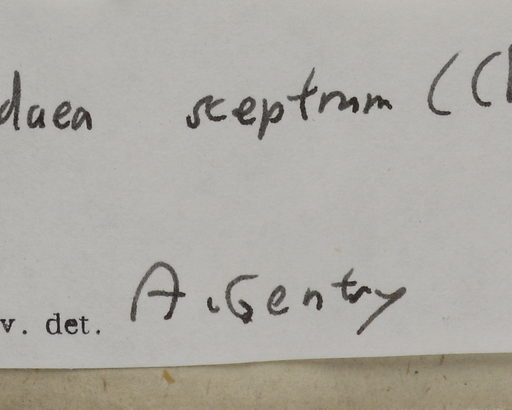 daea sceptrum (Ch
A. Gentry
v. det.